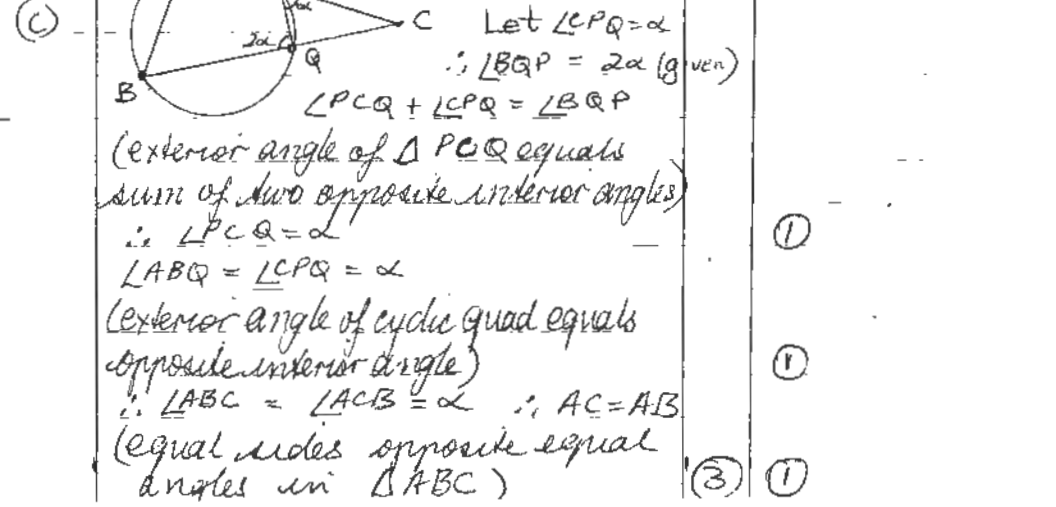 (C)
α
C
Let ∠CPQ = α
2α
Q
∴ ∠BQP = 2α (given)
B
∠PCQ + ∠CPQ = ∠BQP
(exterior angle of Δ PCQ equals
sum of two opposite interior angles)
∴ ∠PCQ = α
①
∠ABQ = ∠CPQ = α
(exterior angle of cyclic quad equals
opposite interior angle)
①
∴ ∠ABC = ∠ACB = α ∴ AC = AB
(equal sides opposite equal
angles in ΔABC)
③ ①